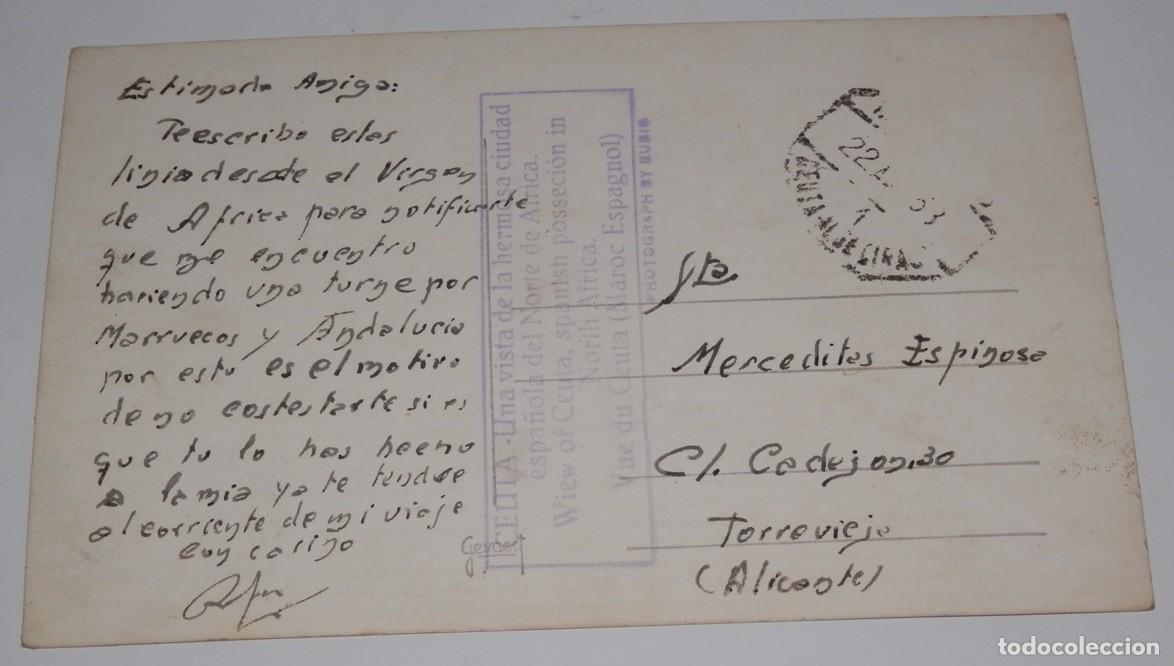 Estimada Amiga:
Teescribo estas
linia desde el Virgen
de Africa para notificarte
que me encuentro
hariendo una turne por
Marruecos y Andalucia
por esto es el motivo
de no costestarte si es
que tu lo has hecho
a la mia ya te tendre
al corriente de mi viaje
con cariño
CEUTA.-Una vista de la hermosa ciudad
española del Norte de Africa.
Wiew of Ceuta, spanish posseción in
North Africa.
Vue du Ceuta (Maroc Espagnol)
PHOTOGRAPH BY RUBIO
22
63
CEUTA
ALGECIRAS
Sta
Merceditas Espinosa
C/. Cadejon.30
Torrevieja
(Alicante)
todocoleccion